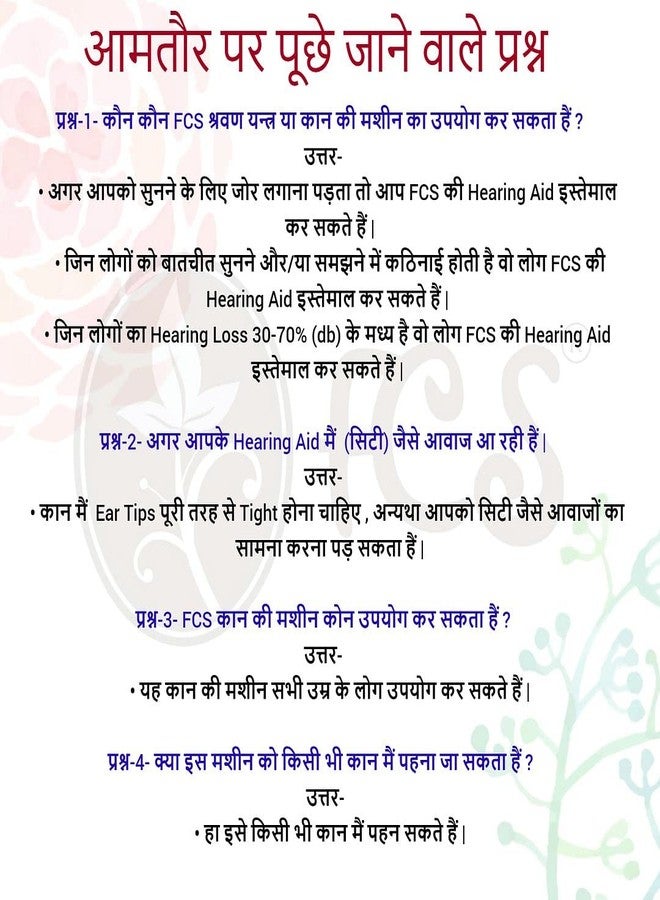 आमतौर पर पूछे जाने वाले प्रश्न
प्रश्न-1- कौन कौन FCS श्रवण यन्त्र या कान की मशीन का उपयोग कर सकता हैं ?
उत्तर-
• अगर आपको सुनने के लिए जोर लगाना पड़ता तो आप FCS की Hearing Aid इस्तेमाल
कर सकते हैं |
• जिन लोगों को बातचीत सुनने और/या समझने में कठिनाई होती है वो लोग FCS की
Hearing Aid इस्तेमाल कर सकते हैं |
• जिन लोगों का Hearing Loss 30-70% (db) के मध्य है वो लोग FCS की Hearing Aid
इस्तेमाल कर सकते हैं |
प्रश्न-2- अगर आपके Hearing Aid मैं (सिटी) जैसे आवाज आ रही हैं |
उत्तर-
• कान मैं Ear Tips पूरी तरह से Tight होना चाहिए , अन्यथा आपको सिटी जैसे आवाजों का
सामना करना पड़ सकता हैं |
प्रश्न-3- FCS कान की मशीन कोन उपयोग कर सकता हैं ?
उत्तर-
• यह कान की मशीन सभी उम्र के लोग उपयोग कर सकते हैं |
प्रश्न-4- क्या इस मशीन को किसी भी कान मैं पहना जा सकता हैं ?
उत्तर-
• हा इसे किसी भी कान मैं पहन सकते हैं |
FCS ®